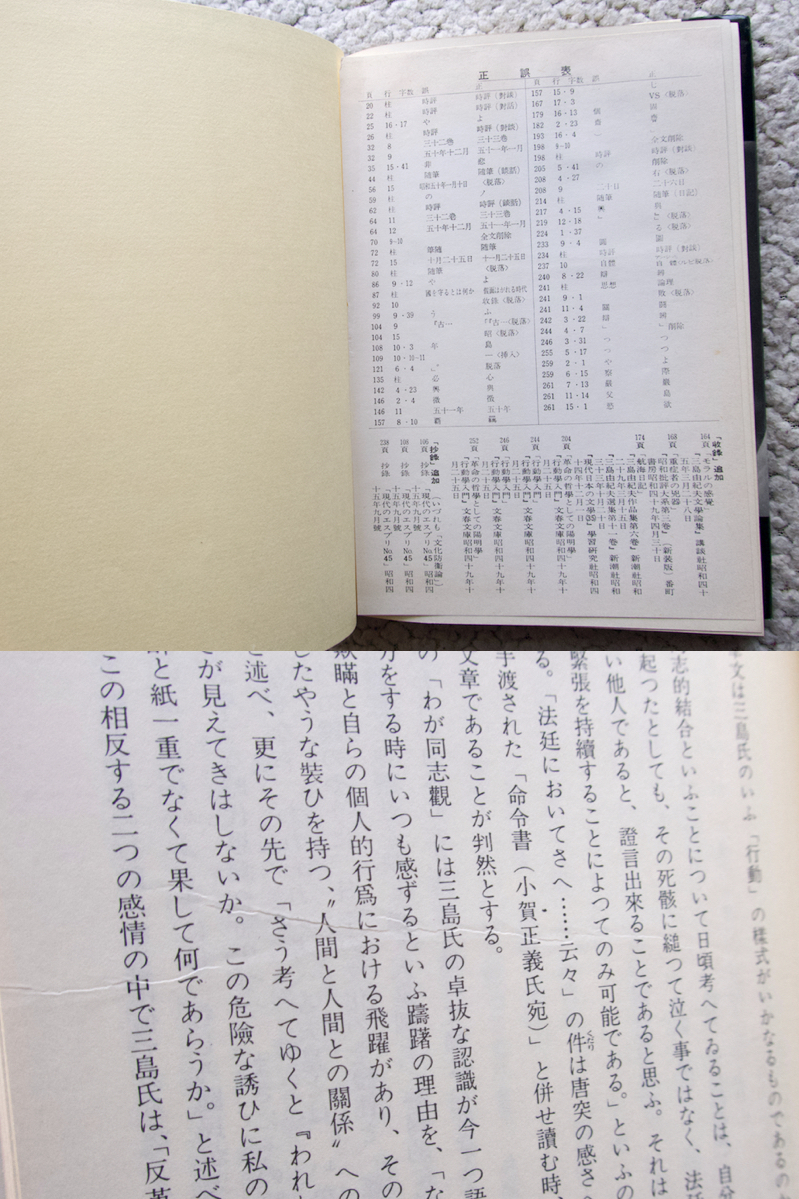 正誤表
頁 行 字数 誤 正
20 柱 時評 時評（對談）
22 柱 時評 時評（對話）
25 16・17 や よ
26 柱 時評 時評（對談）
32 8 三十二巻 三十三巻
32 9 五十年十二月 五十一年一月
35 15・41 非 悲
44 柱 随筆 随筆（談話）
56 15 昭和五十年一月十日 〈脱落〉
59 柱 の ノ
62 柱 時評 時評（談話）
64 11 三十二巻 三十三巻
64 12 五十年十二月 五十一年一月
70 9〜10 全文削除
72 柱 筆随 随筆
72 柱 十月二十五日 十一月二十五日
80 柱 随筆 〈脱落〉
86 9・12 や よ
87 柱
92 10 收録〈脱落〉
99 9・39 う ふ
104 9 『古… 『「古…〈脱落〉
104 15 昭〈脱落〉
108 10・3 年 島
109 10・10〜11 一〈挿入〉
121 6・4 脱落
135 柱 必 心
142 4・23 興 與
146 2・4 徴 微
146 11 五十一年 五十年
157 8・10
頁 行 字数 誤 正
157 15・9 し
167 17・3 VS〈脱落〉
179 16・13 個 固
182 2・23
193 16・4
198 9〜10 全文削除
198 柱 時評 時評（對談）
205 5・41 の 削除
208 4・27 右〈脱落〉
208 9 二十日 二十六日
214 柱 随筆 随筆（日記）
217 4・15 興 與
219 12・18 と〈脱落〉
224 1・37 る〈脱落〉
233 9・4
234 柱 時評 時評（對談）
237 10 自體
240 8・22 辯
241 柱 思想 論理
241 9・1 敗〈脱落〉
241 11・4
242 3・22 辯
244 4・7 」削除
246 3・31 つ つ
255 5・17 つ つ
259 2・1 や よ
259 6・15 察 際
261 7・13 嚴 島
261 11・14
261 15・1 愁
『收録』追加
164頁「モラルの感覚」
『三島由紀夫文學論集』講談社昭和四十五年三月二十八日
168頁「重症者の兇器」
『昭和批評大系第三巻』（新装版）番町書房昭和四十九年四月三十日
174頁「航海日記」
『三島由紀夫作品集第六巻』新潮社昭和二十九年三月十五日
『三島由紀夫選集第十一巻』新潮社昭和三十三年十月二十日
『現代日本の文學35』學習研究社昭和四十四年十二月一日
204頁「革命の哲學としての陽明學」
『行動學入門』文春文庫昭和四十九年十月二十五日
244頁『行動學入門』文春文庫昭和四十九年十月二十五日
246頁『行動學入門』文春文庫昭和四十九年十月二十五日
252頁「革命の哲學としての陽明學」
『行動學入門』文春文庫昭和四十九年十月二十五日
『抄録』追加（いづれも「文化防衛論」）
106頁 抄録『現代のエスプリNo.45』昭和四十五年九月號
108頁 抄録『現代のエスプリNo.45』昭和四十五年九月號
238頁 抄録『現代のエスプリNo.45』昭和四十五年九月號
文は三島氏のいふ「行動」の樣式がいかなるものであるのか
志的結合といふことについて日頃考へてゐることは、自
起つたとしても、その死骸に縋つて泣く事ではなく、法廷
い他人であると、證言出來ることであると思ふ。それは
緊張を持續することによつてのみ可能である。」といふの
る。「法廷においてさへ……云々」の件は唐突の感さへ
くだり
手渡された「命令書（小賀正義氏宛）」と併せ讀む時
文章であることが判然とする。
の「わが同志觀」には三島氏の卓抜な認識が今一つ語
をする時にいつも感ずるといふ躊躇の理由を、「な
欺瞞と自らの個人的行爲における飛躍があり、その
したやうな装ひを持つ、〝人間と人間との關係〟への
と述べ、更にその先で「さう考へてゆくと『われ
が見えてきはしないか。この危險な誘ひに私の
と紙一重でなくて果して何であらうか。」と述べ
この相反する二つの感情の中で三島氏は、「反革